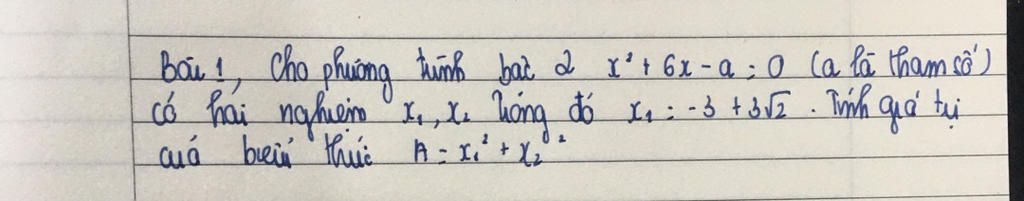 Bài 1, Cho phương trình bậc 2 x² + 6x - a = 0 (a là tham số)
có hai nghiệm x₁, x₂ trong đó x₁ = -3 + 3√2 . Tính giá trị
của biểu thức A = x₁² + x₂²